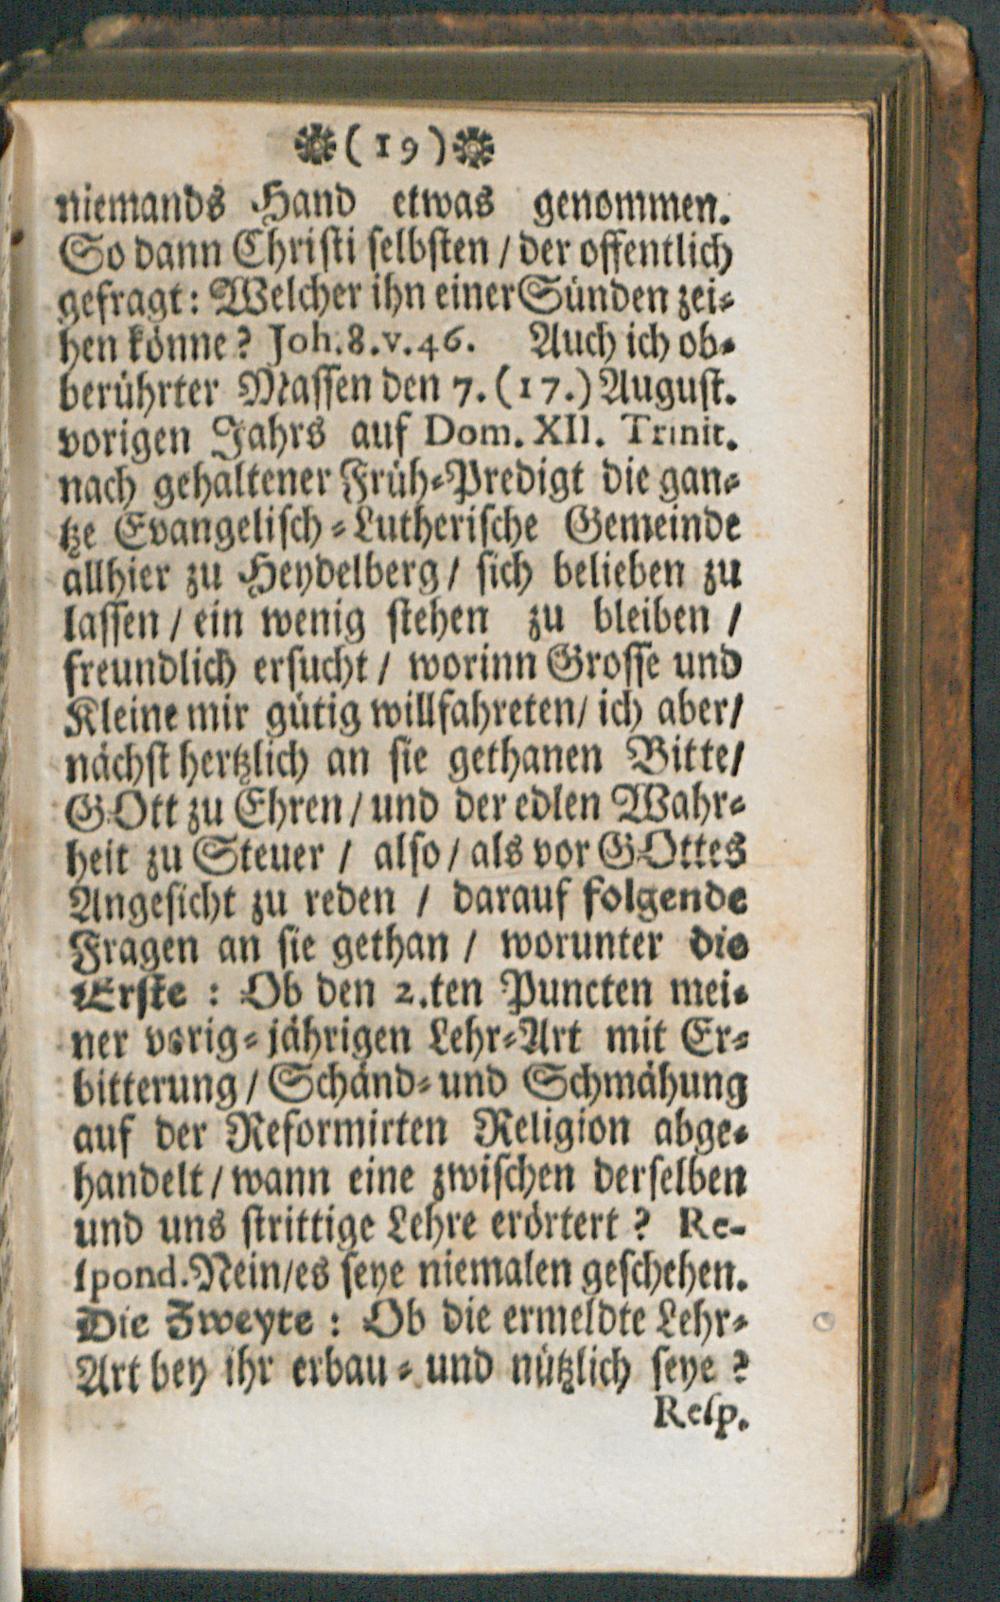 (19)
niemands Hand etwas genommen.
So dann Christi selbsten / der offentlich
gefragt: Welcher ihn einer Sünden zei-
hen könne? Joh. 8. v. 46. Auch ich ob-
berührter Massen den 7. (17.) August.
vorigen Jahrs auf Dom. XII. Trinit.
nach gehaltener Früh-Predigt die gan-
tze Evangelisch-Lutherische Gemeinde
allhier zu Heydelberg / sich belieben zu
lassen / ein wenig stehen zu bleiben /
freundlich ersucht / worinn Grosse und
Kleine mir gütig willfahreten / ich aber /
nächst hertzlich an sie gethanen Bitte /
GOtt zu Ehren / und der edlen Wahr-
heit zu Steuer / also / als vor GOttes
Angesicht zu reden / darauf folgende
Fragen an sie gethan / worunter die
Erste : Ob den 2.ten Puncten mei-
ner vorig-jährigen Lehr-Art mit Er-
bitterung / Schänd- und Schmähung
auf der Reformirten Religion abge-
handelt / wann eine zwischen derselben
und uns strittige Lehre erörtert ? Re-
spond. Nein / es seye niemalen geschehen.
Die Zweyte : Ob die ermeldte Lehr-
Art bey ihr erbau- und nützlich seye ?
Resp.